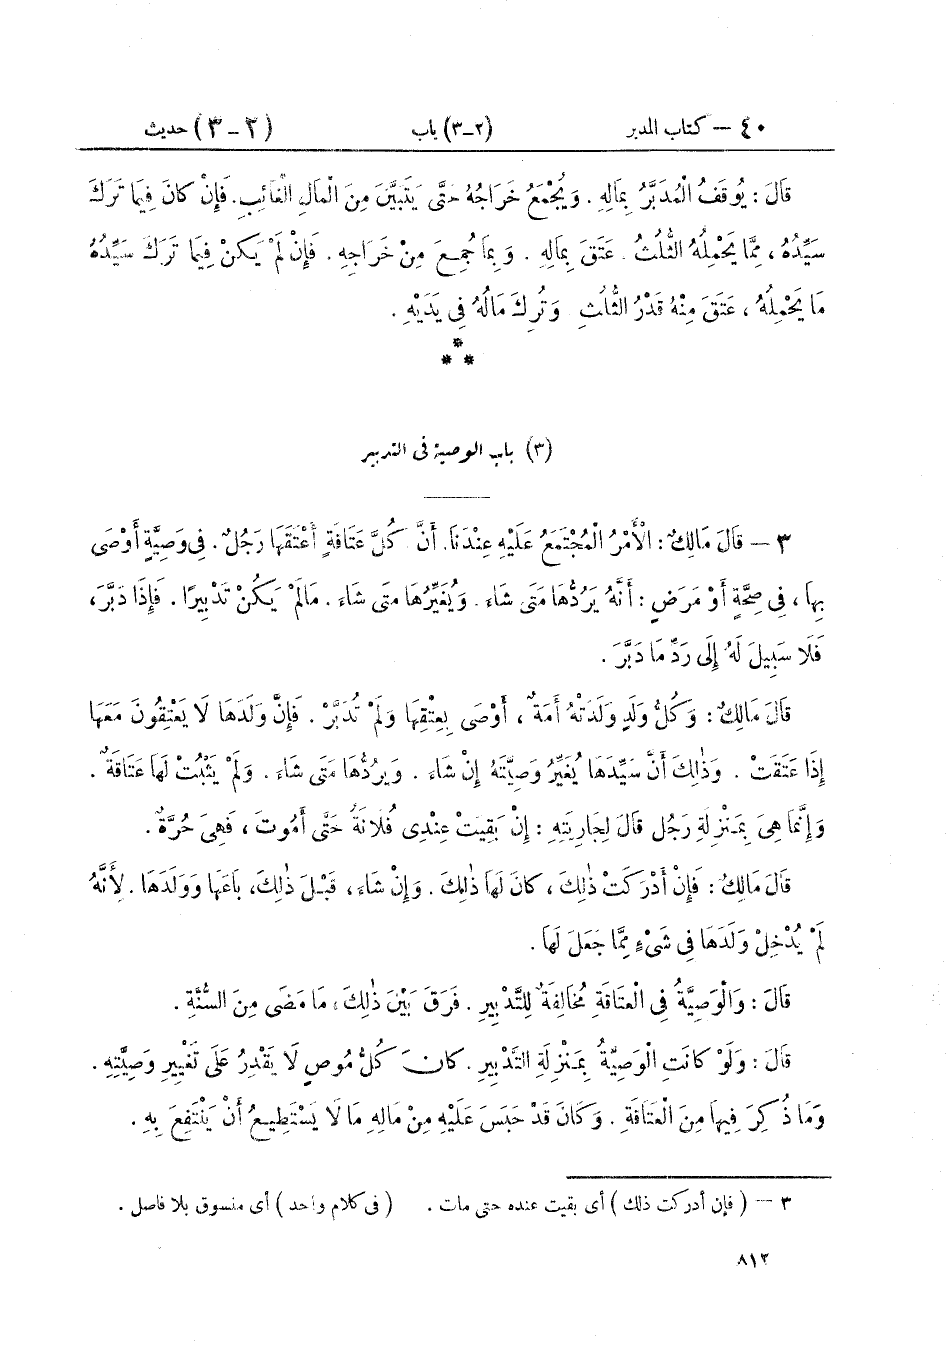 ٤٠ – كتاب المدبر (٢-٣) باب (٢-٣) حديث
قَالَ : يُوقَفُ الْمُدَبَّرُ بِمَالِهِ . وَيُجْمَعُ خَرَاجُهُ حَتَّى يَتَبَيَّنَ مِنَ الْمَالِ الْغَائِبِ . فَإِنْ كَانَ فِيمَا تَرَكَ
سَيِّدُهُ ، مِمَّا يَحْمِلُهُ الثُّلُثُ . عَتَقَ بِمَالِهِ . وَبِمَا جُمِعَ مِنْ خَرَاجِهِ . فَإِنْ لَمْ يَكُنْ فِيمَا تَرَكَ سَيِّدُهُ
مَا يَحْمِلُهُ ، عَتَقَ مِنْهُ قَدْرُ الثُّلُثِ وَتُرِكَ مَالُهُ فِي يَدَيْهِ .
***
(٣) باب الوصية فى التدبير
٣ – قَالَ مَالِكٌ : الْأَمْرُ الْمُجْتَمَعُ عَلَيْهِ عِنْدَنَا . أَنَّ كُلَّ عَتَاقَةٍ أَعْتَقَهَا رَجُلٌ . فِى وَصِيَّةٍ أَوْصَى
بِهَا ، فِى صِحَّةٍ أَوْ مَرَضٍ : أَنَّهُ يَرُدُّهَا مَتَى شَاءَ . وَيُغَيِّرُهَا مَتَى شَاءَ . مَالَمْ يَكُنْ تَدْبِيرًا . فَإِذَا دَبَّرَ ،
فَلَا سَبِيلَ لَهُ إِلَى رَدِّ مَا دَبَّرَ .
قَالَ مَالِكٌ : وَكُلُّ وَلَدٍ وَلَدَتْهُ أَمَةٌ ، أَوْصَى بِعِتْقِهَا وَلَمْ تُدَبَّرْ . فَإِنَّ وَلَدَهَا لَا يَعْتِقُونَ مَعَهَا
إِذَا عَتَقَتْ . وَذٰلِكَ أَنَّ سَيِّدَهَا يُغَيِّرُ وَصِيَّتَهُ إِنْ شَاءَ . وَيَرُدُّهَا مَتَى شَاءَ . وَلَمْ يَثْبُتْ لَهَا عَتَاقَةٌ .
وَإِنَّمَا هِىَ بِمَنْزِلَةِ رَجُلٍ قَالَ لِجَارِيَتِهِ : إِنْ بَقِيَتْ عِنْدِى فُلَانَةُ حَتَّى أَمُوتَ ، فَهِىَ حُرَّةٌ .
قَالَ مَالِكٌ : فَإِنْ أَدْرَكَتْ ذٰلِكَ ، كَانَ لَهَا ذٰلِكَ . وَإِنْ شَاءَ ، قَبْلَ ذٰلِكَ ، بَاعَهَا وَوَلَدَهَا . لِأَنَّهُ
لَمْ يُدْخِلْ وَلَدَهَا فِى شَىْءٍ مِمَّا جَعَلَ لَهَا .
قَالَ : وَالْوَصِيَّةُ فِى الْعَتَاقَةِ مُخَالِفَةٌ لِلتَّدْبِيرِ . فَرَقَ بَيْنَ ذٰلِكَ ، مَا مَضَى مِنَ السُّنَّةِ .
قَالَ : وَلَوْ كَانَتِ الْوَصِيَّةُ بِمَنْزِلَةِ التَّدْبِيرِ . كَانَ كُلُّ مُوصٍ لَا يَقْدِرُ عَلَى تَغْيِيرِ وَصِيَّتِهِ .
وَمَا ذُكِرَ فِيهَا مِنَ الْعَتَاقَةِ . وَكَانَ قَدْ حَبَسَ عَلَيْهِ مِنْ مَالِهِ مَا لَا يَسْتَطِيعُ أَنْ يَنْتَفِعَ بِهِ .
٣ – ( فإن أدركت ذلك ) أى بقيت عنده حتى مات . ( فى كلام واحد ) أى منسوق بلا فاصل .
٨١٢